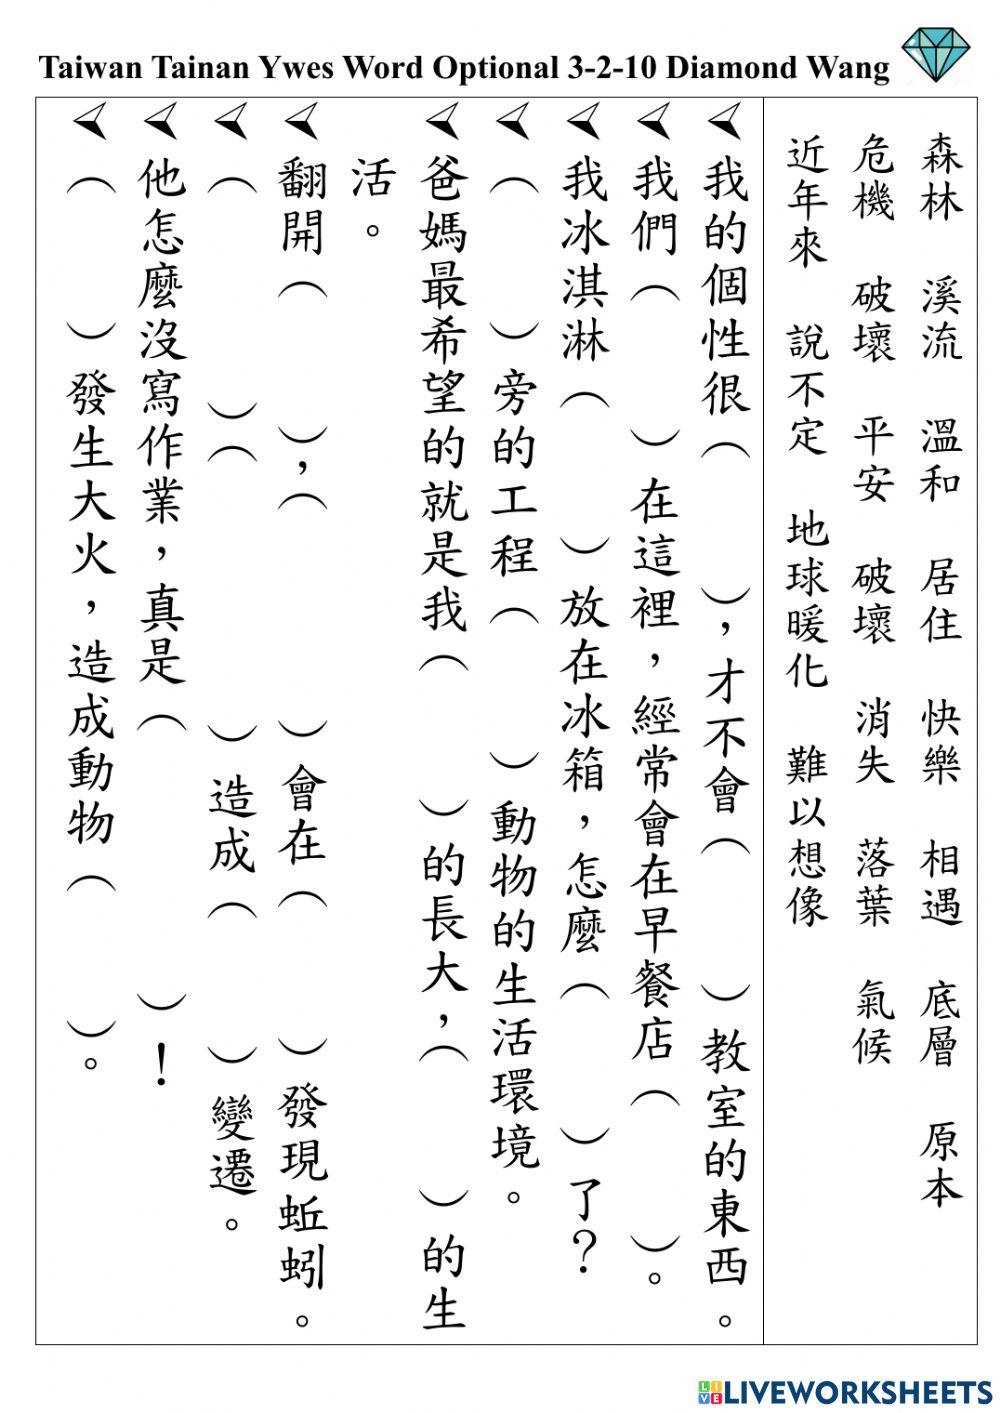 Taiwan Tainan Ywes Word Optional 3-2-10 Diamond Wang
森林 溪流 溫和 居住 快樂 相遇 底層 原本
危機 破壞 平安 破壞 消失 落葉 氣候
近年來 說不定 地球暖化 難以想像
我的個性很( ),才不會( )教室的東西。
我們( )在這裡,經常會在早餐店( )。
我冰淇淋( )放在冰箱,怎麼( )了?
( )旁的工程( )動物的生活環境。
爸媽最希望的就是我( )的長大,( )的生
活。
翻開( ),( )會在( )發現蚯蚓。
( )( )造成( )變遷。
他怎麼沒寫作業,真是( )!
( )發生大火,造成動物( )。
LIVE LIVEWORKSHEETS